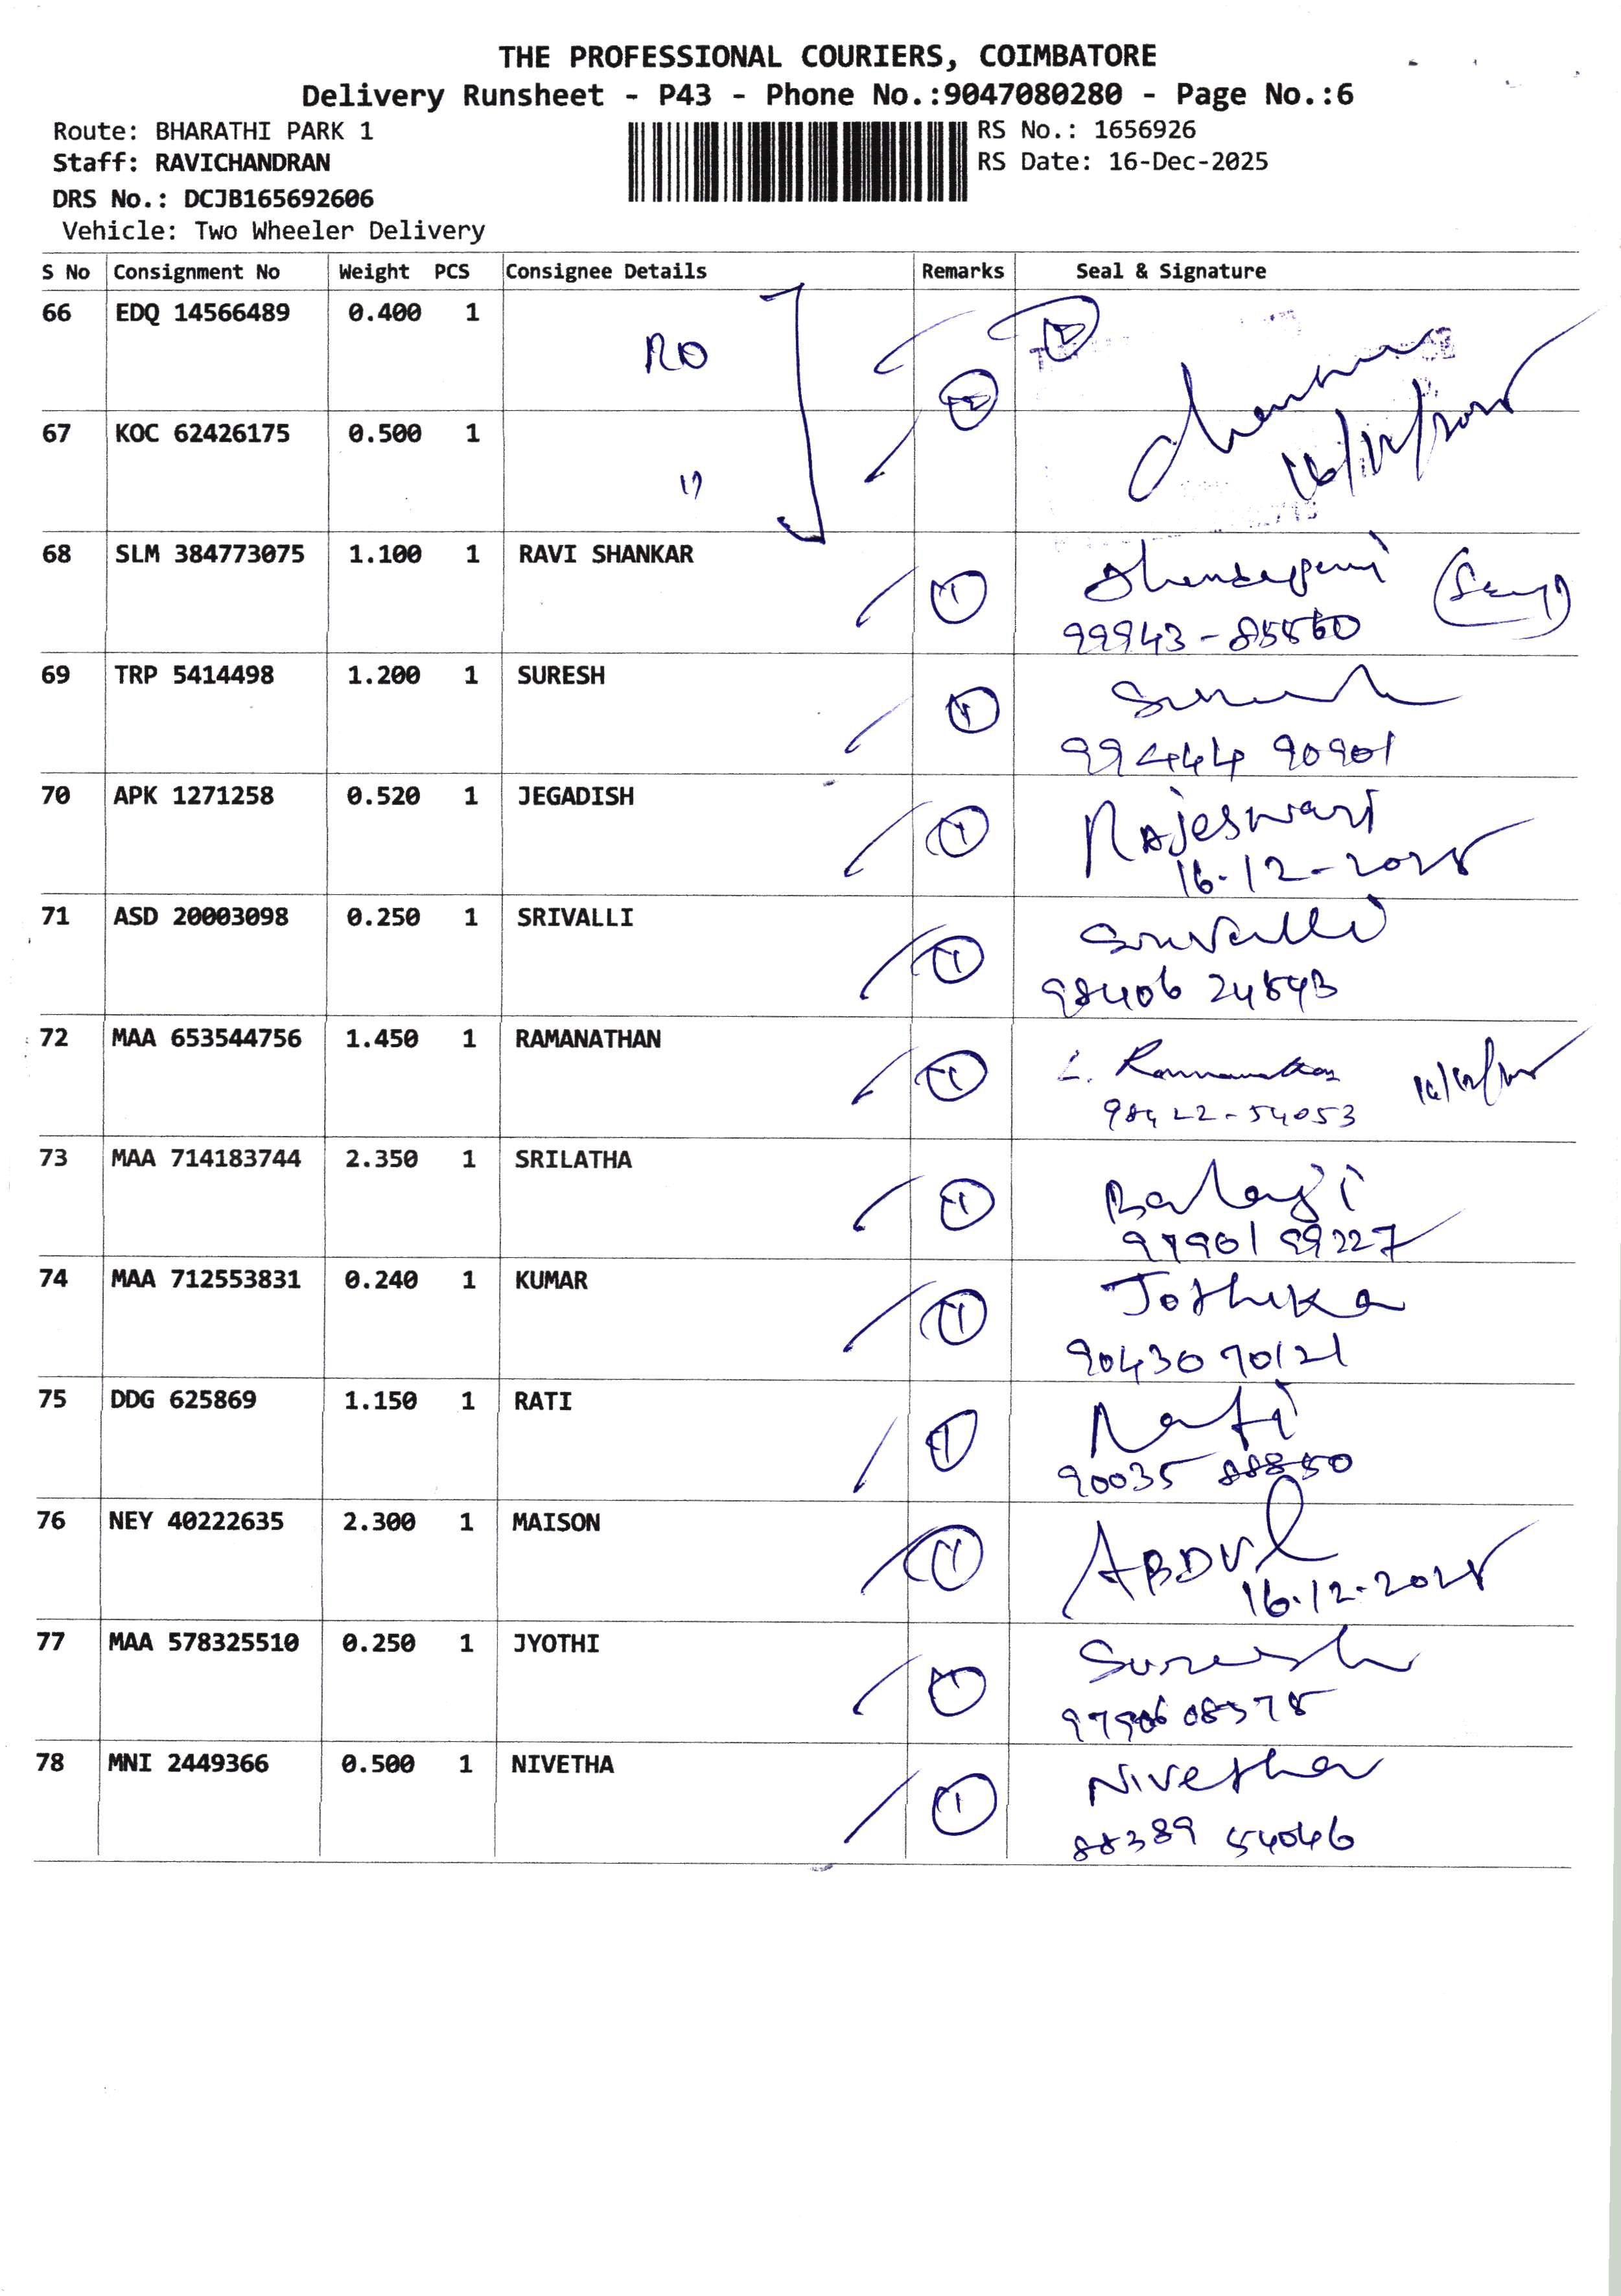 THE PROFESSIONAL COURIERS, COIMBATORE
Delivery Runsheet - P43 - Phone No.:9047080280 - Page No.:6
Route: BHARATHI PARK 1
RS No.: 1656926
Staff: RAVICHANDRAN
RS Date: 16-Dec-2025
DRS No.: DCJB165692606
Vehicle: Two Wheeler Delivery
S No Consignment No Weight PCS Consignee Details Remarks Seal & Signature
66 EDQ 14566489 0.400 1
RO
67 KOC 62426175 0.500 1
16/12/2025
68 SLM 384773075 1.100 1 RAVI SHANKAR 1
99943-85560
69 TRP 5414498 1.200 1 SURESH 1 Suresh
99444 90901
70 APK 1271258 0.520 1 JEGADISH 1 Rajeswari
16-12-2025
71 ASD 20003098 0.250 1 SRIVALLI 1 Srivalli
98406 24543
72 MAA 653544756 1.450 1 RAMANATHAN 1 L. Ramanathan
98422-54053
73 MAA 714183744 2.350 1 SRILATHA 1 Balaji
97901 99227
74 MAA 712553831 0.240 1 KUMAR 1 Jothika
90430 70121
75 DDG 625869 1.150 1 RATI 1 Rati
90035 88850
76 NEY 40222635 2.300 1 MAISON 1 ABDUL
16-12-2025
77 MAA 578325510 0.250 1 JYOTHI 1 Suresh
78 MNI 2449366 0.500 1 NIVETHA 1 Nivetha
88389 54046